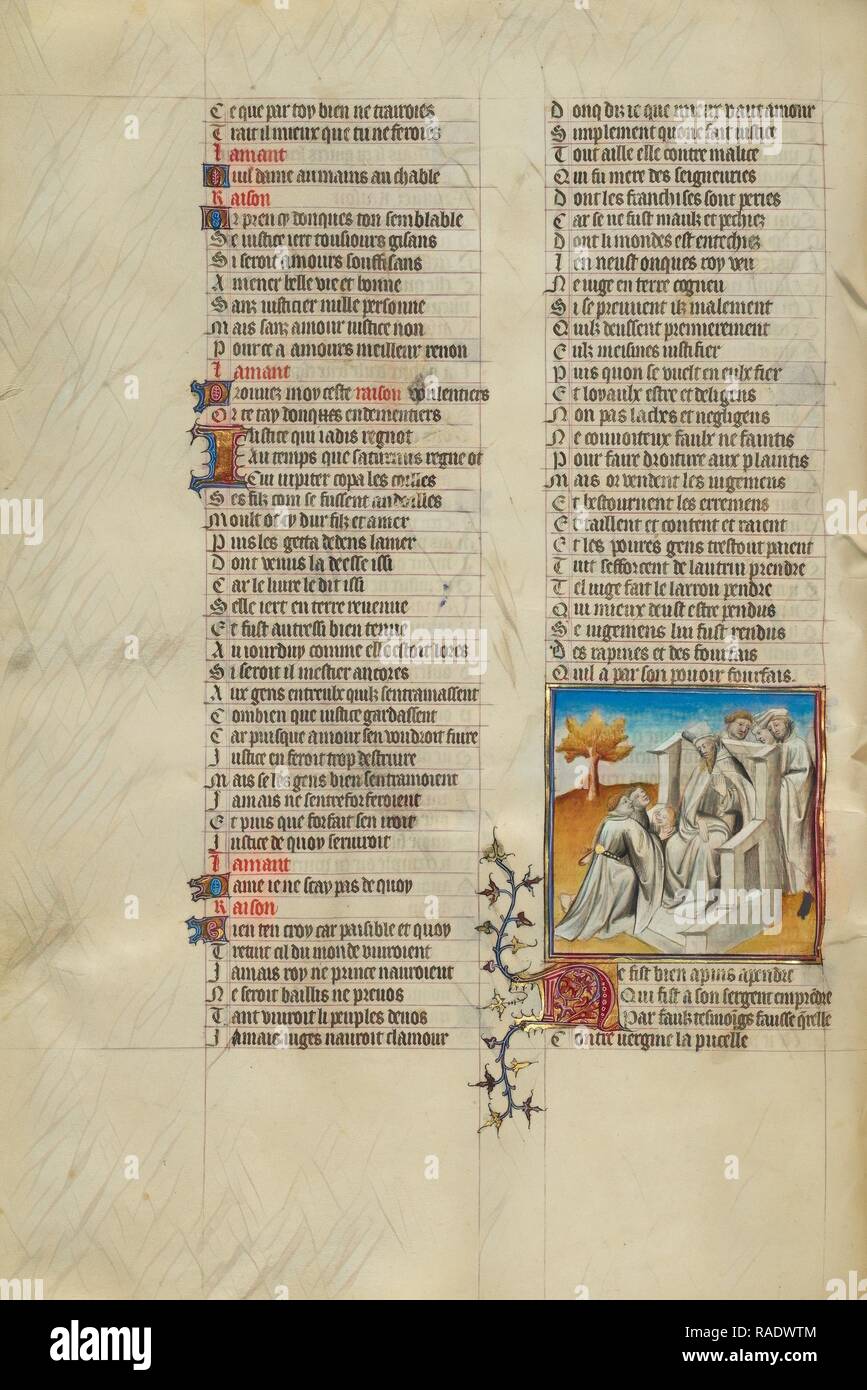 Ce que par toy bien ne trairoies
Trait il mieux que tu ne feroies
Lamant
Ouil dame au mains au chable
Raison
Or pren cy donques ton semblable
Se iustice iert tousiours gisans
Si seroit amours souffisans
A mener belle vie et bonne
Sanz iusticier nulle personne
Mais sanz amour iustice non
Pour ce a amours meilleur renon
Lamant
Prouuez moy ceste raison voulentiers
Or te tay donques endementiers
Iustice qui iadis regnot
Au temps que saturnus regne ot
Cui iupiter copa les coilles
Ses filz com se fussent andoilles
Moult ot cy dur filz et amer
Puis les getta dedens lamer
Dont venus la deesse issi
Car le liure le dit issi
Selle iert en terre reuenue
Et fust autressi bien tenue
Au iourduy comme elle estoit lores
Si seroit il mestier ancores
Aux gens entreulx quilz sentramassent
Combien que iustice gardassent
Car puisque amour sen voudroit fuire
Iustice en feroit trop destruire
Mais se les gens bien sentramoient
Jamais ne sentreforferoient
Et puis que forfait sen iroit
Justice de quoy seruiroit
Lamant
Dame ie ne scay pas de quoy
Raison
Bien ten croy car paisible et quoy
Tretuit cil du monde viuroient
Jamais roy ne prince nauroient
Ne seroit baillis ne preuos
Tant viuroit li peuples deuos
Jamais iuges nauroit clamour
Donq dis ie que mieux vaut amour
Simplement quone fait iustice
Tout aille elle contre malice
Qui fu mere des seigneuries
Dont les franchises sont peries
Car se ne fust maulz et pechiez
Dont li mondes est entechiez
Ien neust onques roy veu
Ne iuge en terre cogneu
Si se preuuent ilz malement
Quilz deussent premierement
Eulz meismes iustifier
Puis quon se vuelt en eulx fier
Et loyaulx estre et deligens
Non pas lasches et negligens
Ne conuoiteux faulx ne faintis
Pour faire droiture aux plaintis
Mais or vendent les iugemens
Et bestournent les erremens
Et taillent et content et raient
Et les poures gens trestout paient
Tuit sefforcent de lautrui prendre
Tel iuge fait le larron pendre
Qui mieux deust estre pendus
Se iugemens lui fust rendus
Des rapines et des fourfais
Quil a par son pouoir fourfais.
Ne fist bien apius apendre
Qui fist a son sergent emprēdre
Par faulz tesmoīgs fausse q̄relle
Contre uergine la pucelle
alamy
Image ID: RADWTM
www.alamy.com